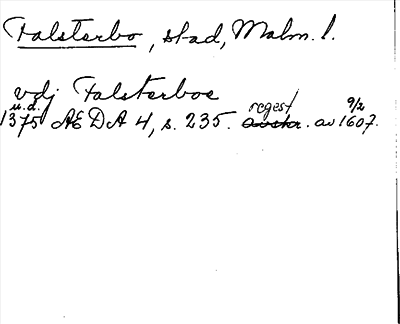 Falsterbo, stad, Malm. l.
vdj Falsterboe
u.d.
1375 AEDA 4, s. 235. regest av 9/2 1607.